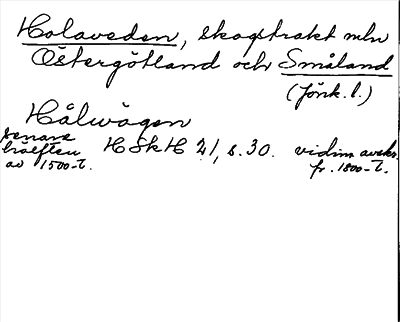 Holaveden, skogstrakt mln
Östergötland och Småland
(Jönk. l.)
Hålwägen
senare
hälften
av 1500-t.
HSkH 21, s. 30.
vidim. avskr.
fr. 1800-t.